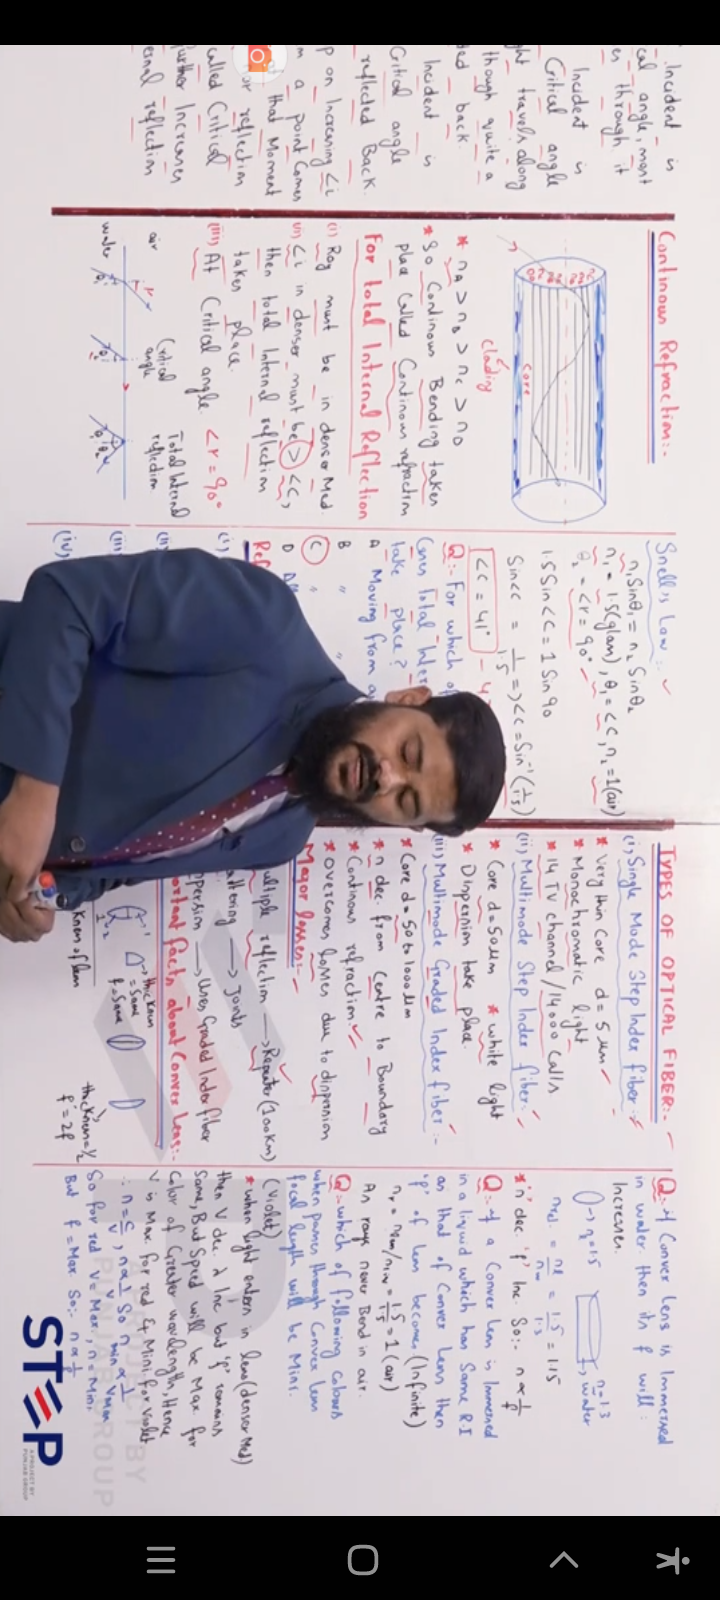 . Incident is
cal angle, most
es through it
Incident is
Critical angle
ght travels along
though quite a
ded back
Incident is
Critical angle
reflected Back.
p on Increasing <i
m a point Comes
that Moment
for reflection
called Critical
further Increases
ernal reflection
Continous Refraction:-
core
clading
* nA > nB > nC > nD
* So Continous Bending takes
place Called Continous refraction
For total Internal Reflection
(i) Ray must be in denser Med.
(ii) <i in denser must be > <C,
then total Internal reflection
takes place.
(iii) At Critical angle <r = 90°
air
water
Critical
angle
Total Internal
reflection
Snell's Law :-
n₁Sinθ₁ = n₂ Sinθ₂
n₁ = 1.5(glass), θ₁ = <C, n₂ = 1(air)
θ₂ = <r = 90°
1.5 Sin<C = 1 Sin 90
Sin<C = 1/1.5 => <C = Sin⁻¹(1/1.5)
<C = 41°
Q:- For which of
Cases Total Inter
take place?
A Moving from
B "
C "
D
Ref
(i)
(ii)
(iii)
(iv)
TYPES OF OPTICAL FIBER:-
(i) Single Mode Step Index fiber:-
* Very thin Core d = 5 μm
* Monochromatic light
* 14 TV channel / 14000 Calls
(ii) Multimode Step Index fiber:-
* Core d = 50 μm * white light
* Dispersion take place.
(iii) Multimode Graded Index fiber:-
* Core d = 50 to 1000 μm
* n dec. from Centre to Boundary
* Continous refraction.
* overcomes losses due to dispersion
Major losses:-
ultiple reflection → Repeater (100 Km)
attering → Joints
persion → Uses Graded Index fiber
portant facts about Convex Lens:-
→ thickness
= Same
f = Same
thickness = 1/2
f' = 2f
kness of lens
Q:- if Convex Lens is Immersed
in water then its f will :
Increases.
→ n = 1.5
n = 1.3
water
* n dec. 'f' Inc. So:- n ∝ 1/f
Q:- if a Convex lens is Immersed
in a liquid which has Same R.I
as that of Convex Lens then
'f' of lens becomes (Infinite)
1.5/1.5 = 1 (air)
As rays never Bend in air.
Q:- which of following Colours
when passes through Convex Lens
focal length will be Mini.
(Violet)
* when light enters in lens (denser Med)
then V dec. λ Inc but 'f' remains
Same, But Speed will be Max for
Color of Greater wavelength, Hence
V is Max for red & Mini for Violet
∴ n = c/v, n ∝ 1/v So n min ∝ 1/V Max
So for red V = Max, n = Mini
But f = Max So:- n ∝ 1/f
STEP
A PROJECT BY
PUNJAB GROUP
A PROJECT BY
PUNJAB GROUP